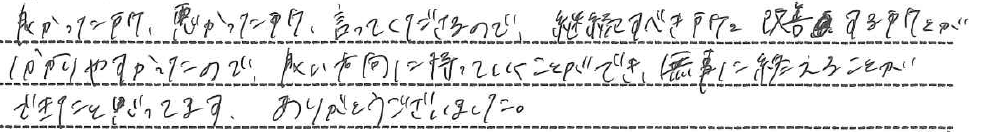 良かった所、悪かった所、言ってくださるので、継続すべき所と改善する所とが
分かりやすかったので、良い方向に持っていくことができ、無事に終えることが
できたと思ってます。ありがとうございました。